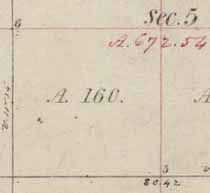 Sec. 5
6
A. 672.54
A. 160.
A
5
80.42